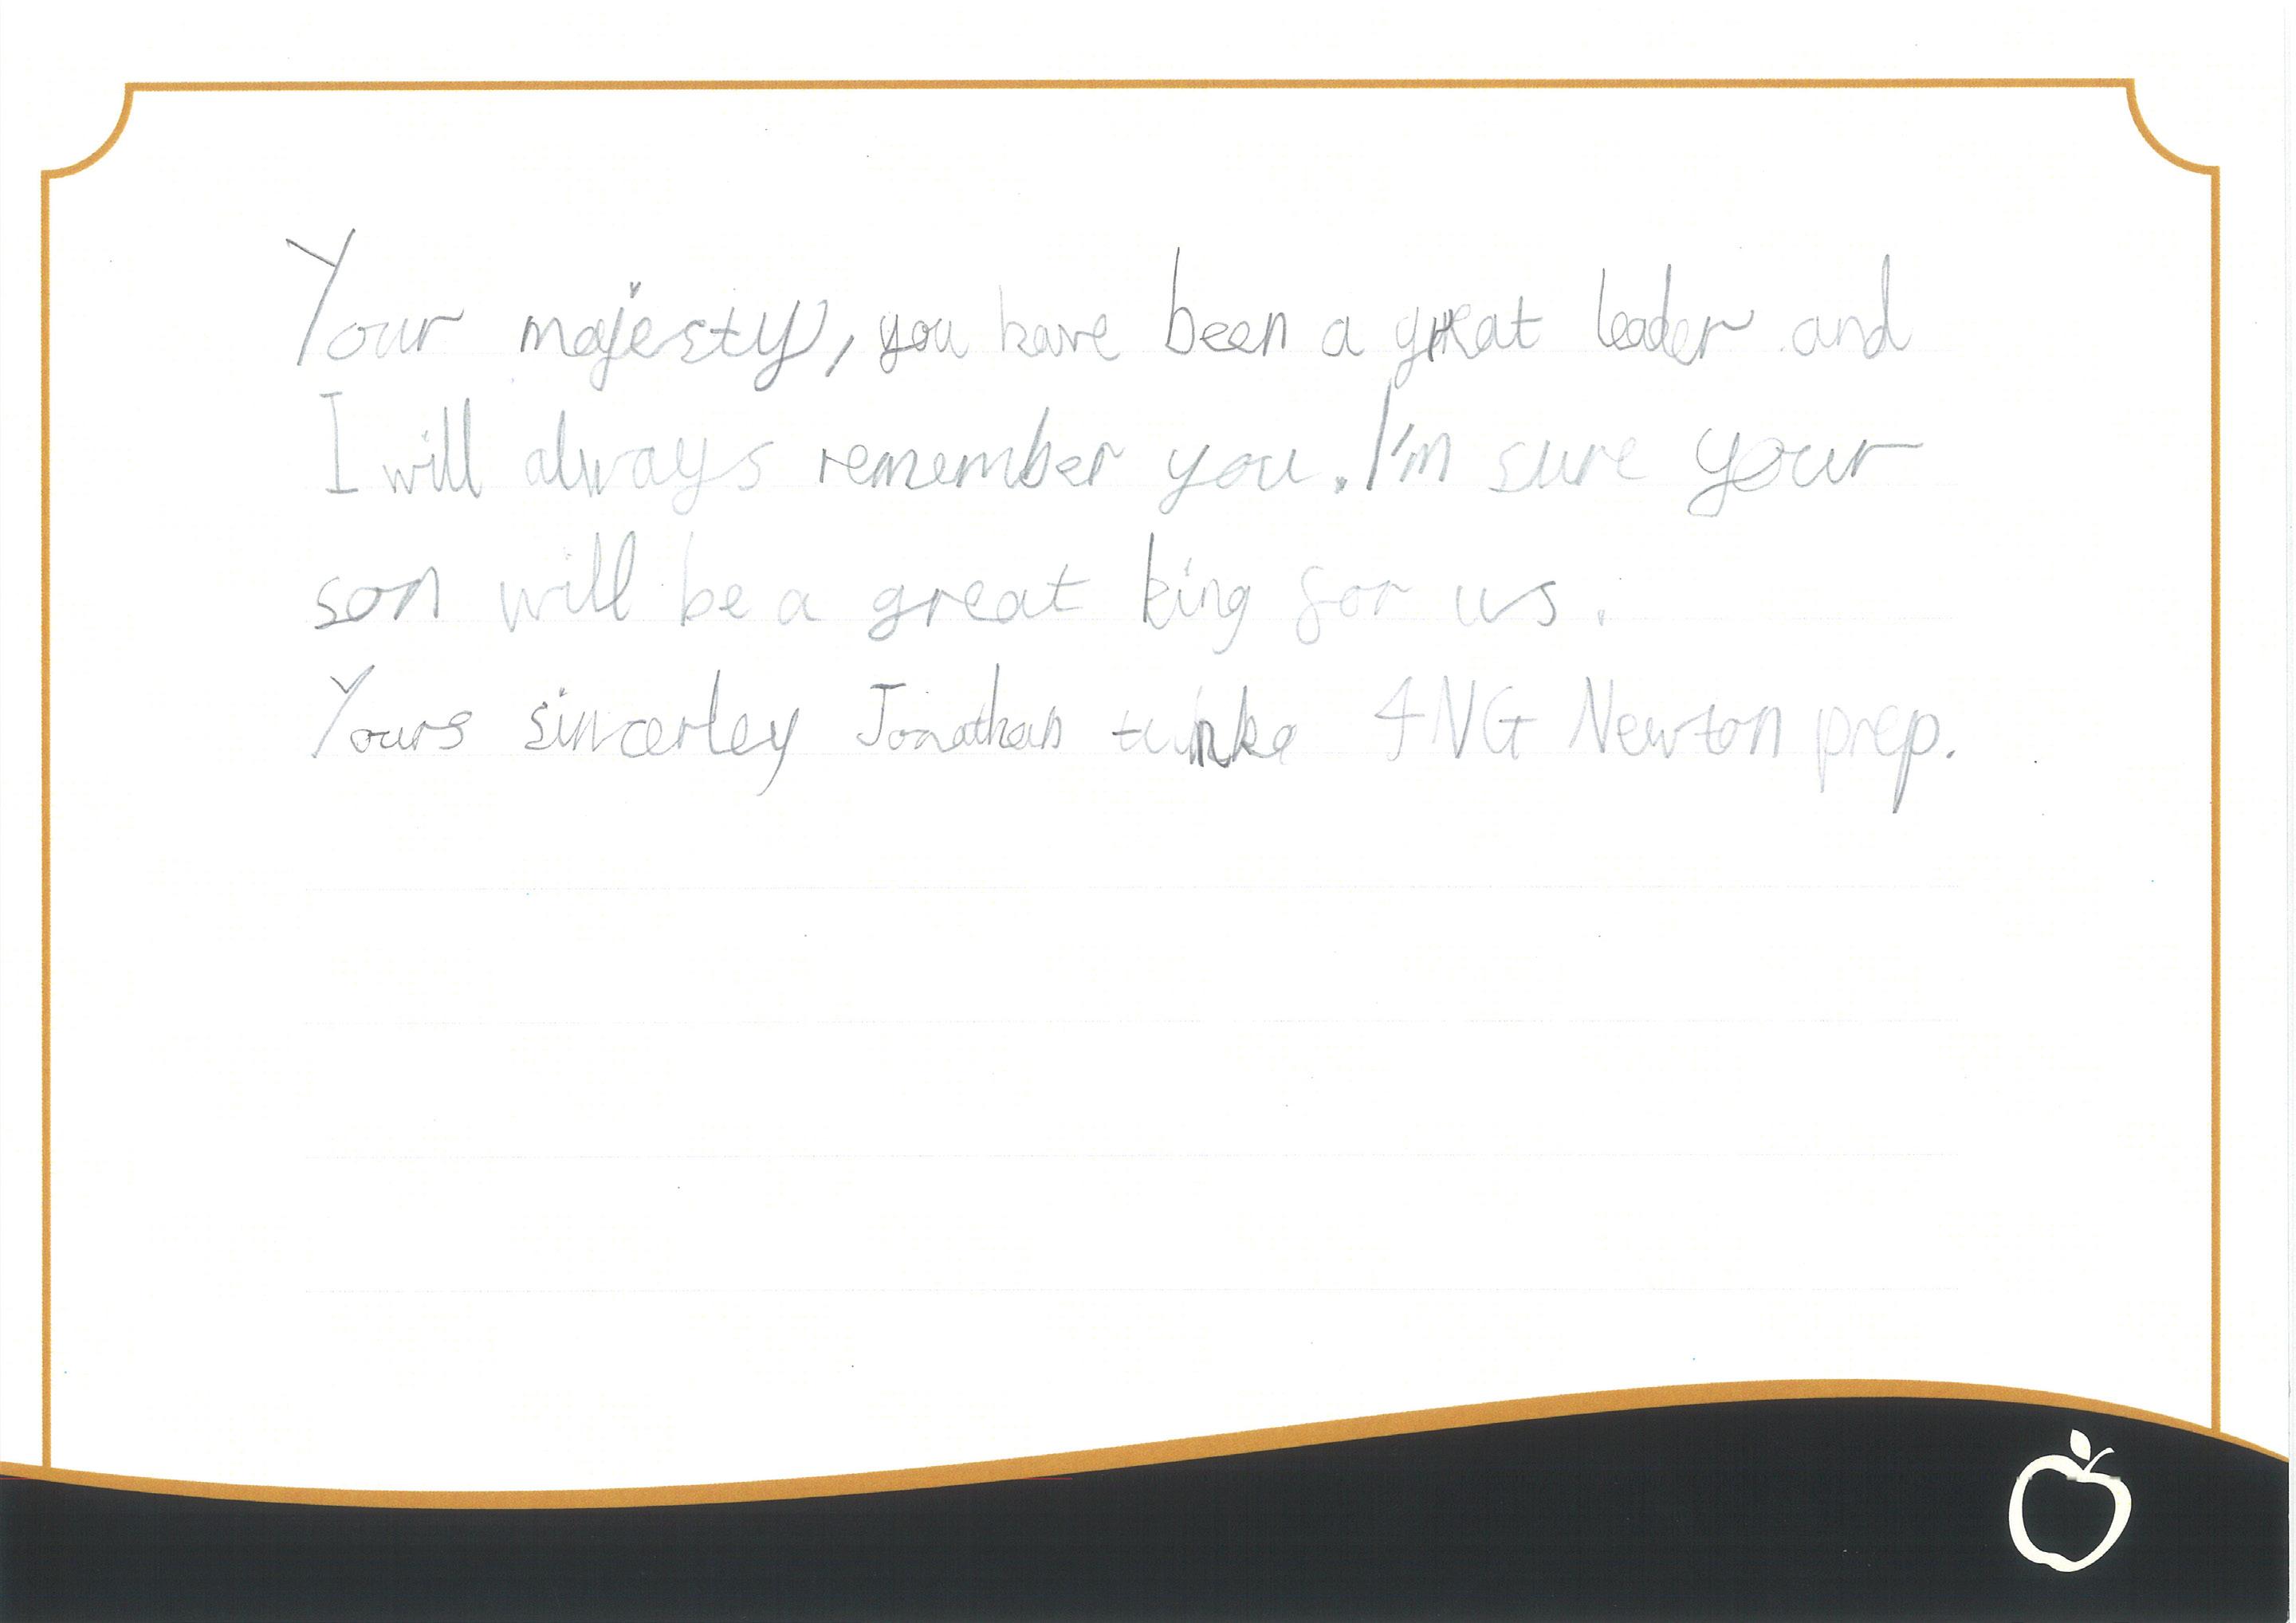 Your majesty, you have been a great leader and
I will always remember you. I'm sure your
son will be a great king for us.
Yours sincerley Jonathan 4NG Newton prep.